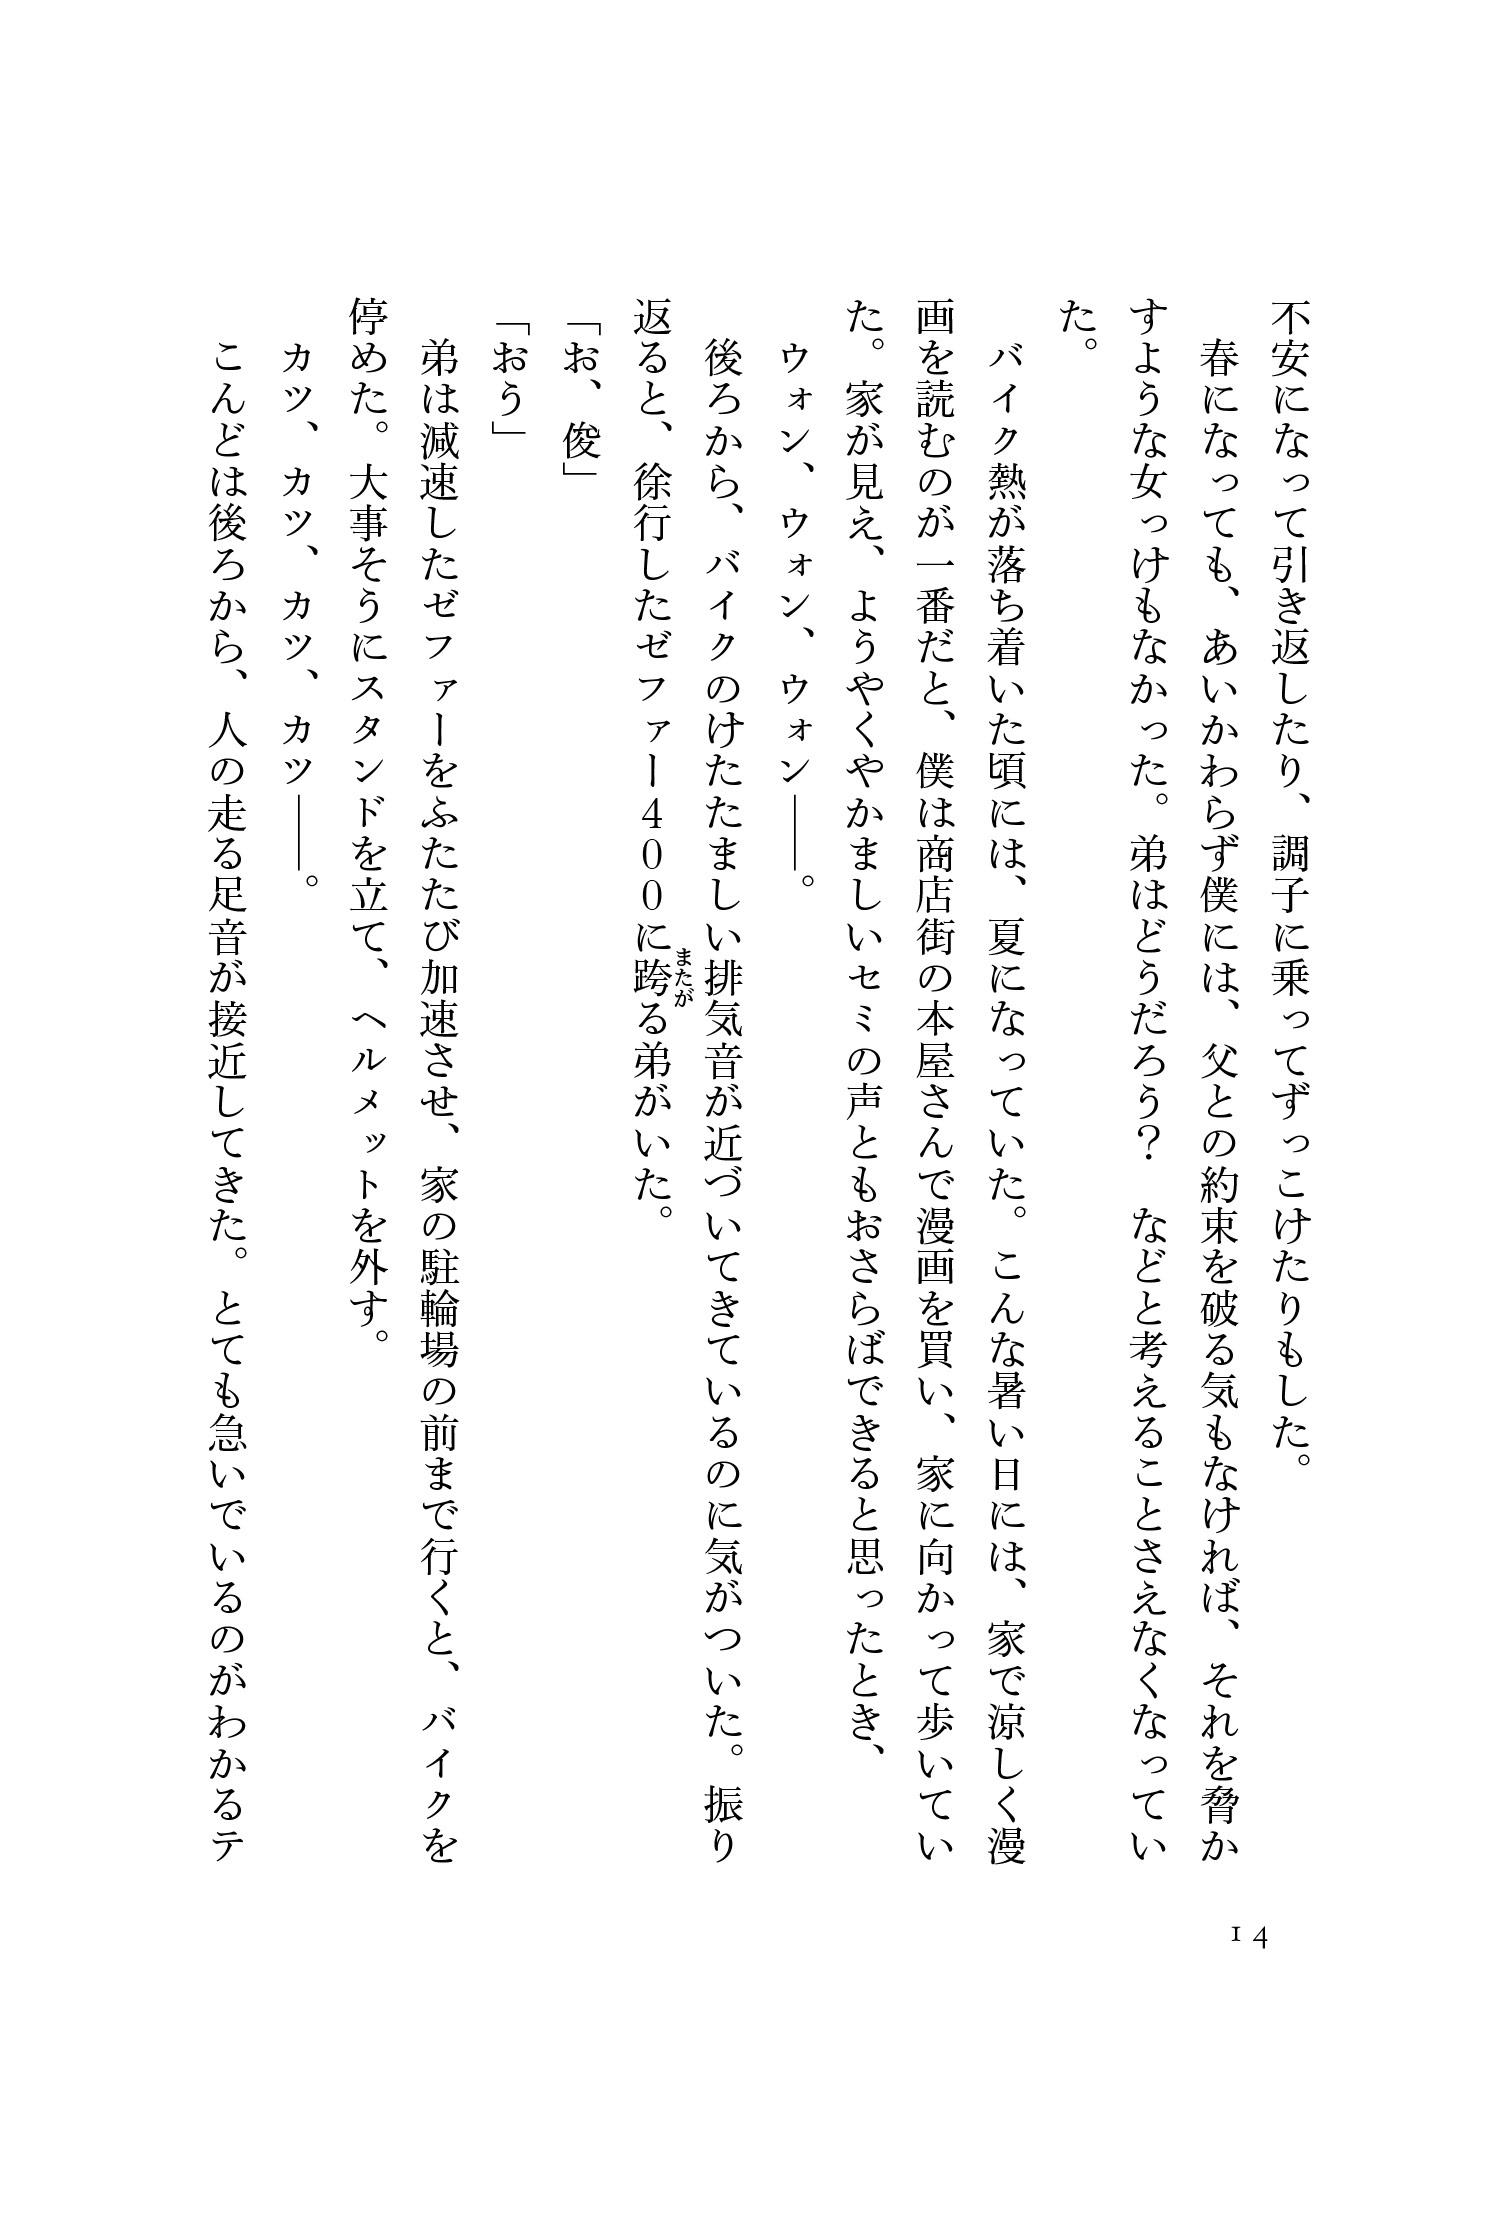 不安になって引き返したり、調子に乗ってずっこけたりもした。
　春になっても、あいかわらず僕には、父との約束を破る気もなければ、それを脅か
すような女っけもなかった。弟はどうだろう？　などと考えることさえなくなってい
た。
　バイク熱が落ち着いた頃には、夏になっていた。こんな暑い日には、家で涼しく漫
画を読むのが一番だと、僕は商店街の本屋さんで漫画を買い、家に向かって歩いてい
た。家が見え、ようやくやかましいセミの声ともおさらばできると思ったとき、
　ウォン、ウォン、ウォン――。
　後ろから、バイクのけたたましい排気音が近づいてきているのに気がついた。振り
返ると、徐行したゼファー４００に跨る弟がいた。
またが
「お、俊」
「おう」
　弟は減速したゼファーをふたたび加速させ、家の駐輪場の前まで行くと、バイクを
停めた。大事そうにスタンドを立て、ヘルメットを外す。
　カツ、カツ、カツ、カツ――。
　こんどは後ろから、人の走る足音が接近してきた。とても急いでいるのがわかるテ
14